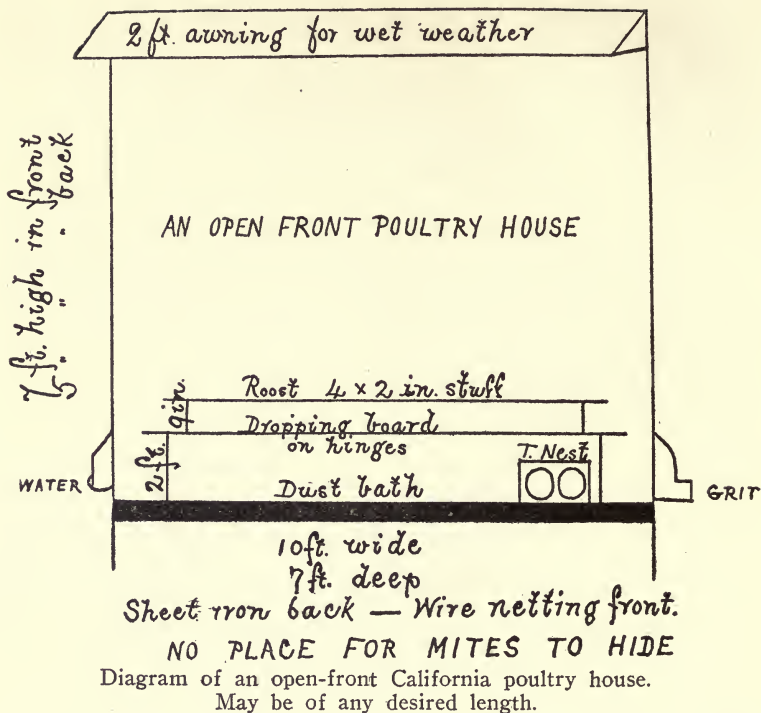 2 ft. awning for wet weather
7 ft. high in front
5 " " " back
AN OPEN FRONT POULTRY HOUSE
Roost 4 x 2 in. stuff
9 in.
Dropping board
on hinges
2 ft.
T. Nest
WATER
Dust bath
GRIT
10 ft. wide
7 ft. deep
Sheet iron back — Wire netting front.
NO PLACE FOR MITES TO HIDE
Diagram of an open-front California poultry house.
May be of any desired length.